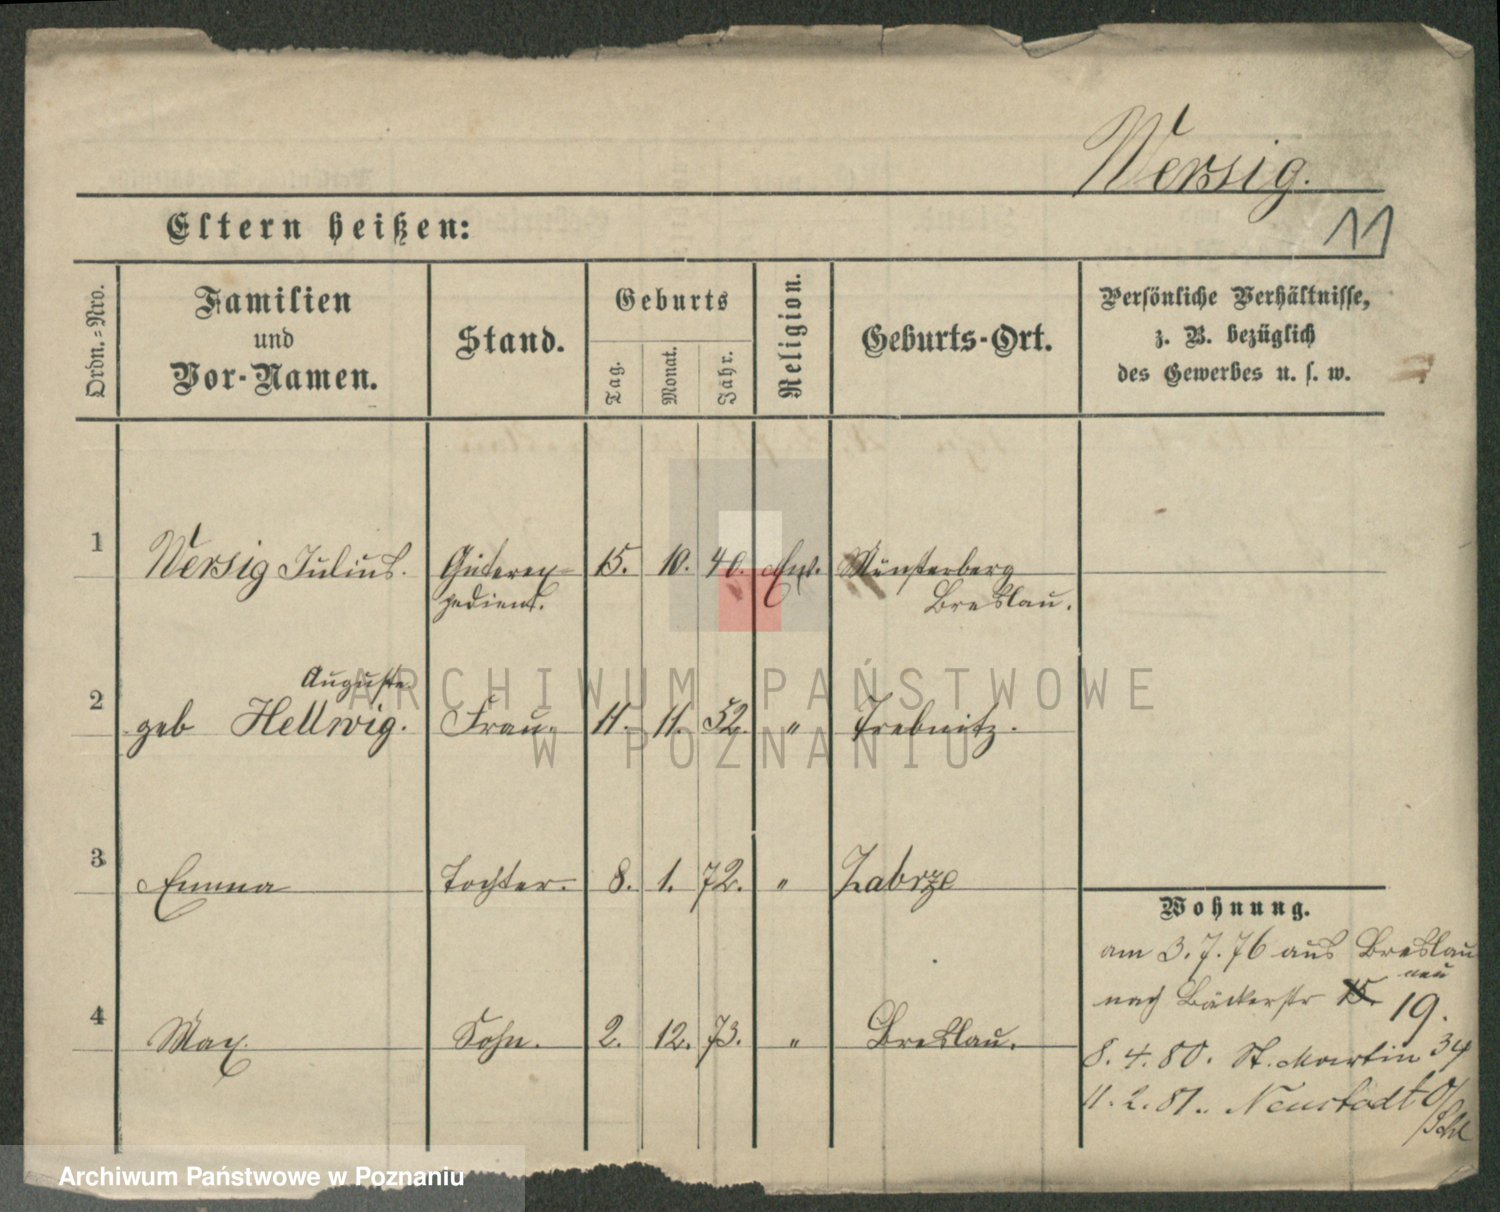 Wersig.
11
Eltern heißen:
Ordn.=Nro.
Familien
und
Vor-Namen.
Stand.
Geburts
Tag.
Monat.
Jahr.
Religion.
Geburts-Ort.
Persönliche Verhältnisse,
z. B. bezüglich
des Gewerbes u. s. w.
1 Wersig Julius. Güterex- 15. 10. 40. Ev. Münsterberg
pedient. Breslau.
Auguste
2 geb Hellwig. Frau. 11. 11. 52. " Trebnitz.
3 Emma Tochter. 8. 1. 72. " Zabrze
4 Max. Sohn. 2. 12. 73. " Breslau.
Wohnung.
am 3.7.76 aus Breslau
neu
nach Bäckerstr 15 19.
8.4.80. St. Martin 34
11.2.81. Neustadt O/
Schl
ARCHIWUM PAŃSTWOWE
W POZNANIU
Archiwum Państwowe w Poznaniu